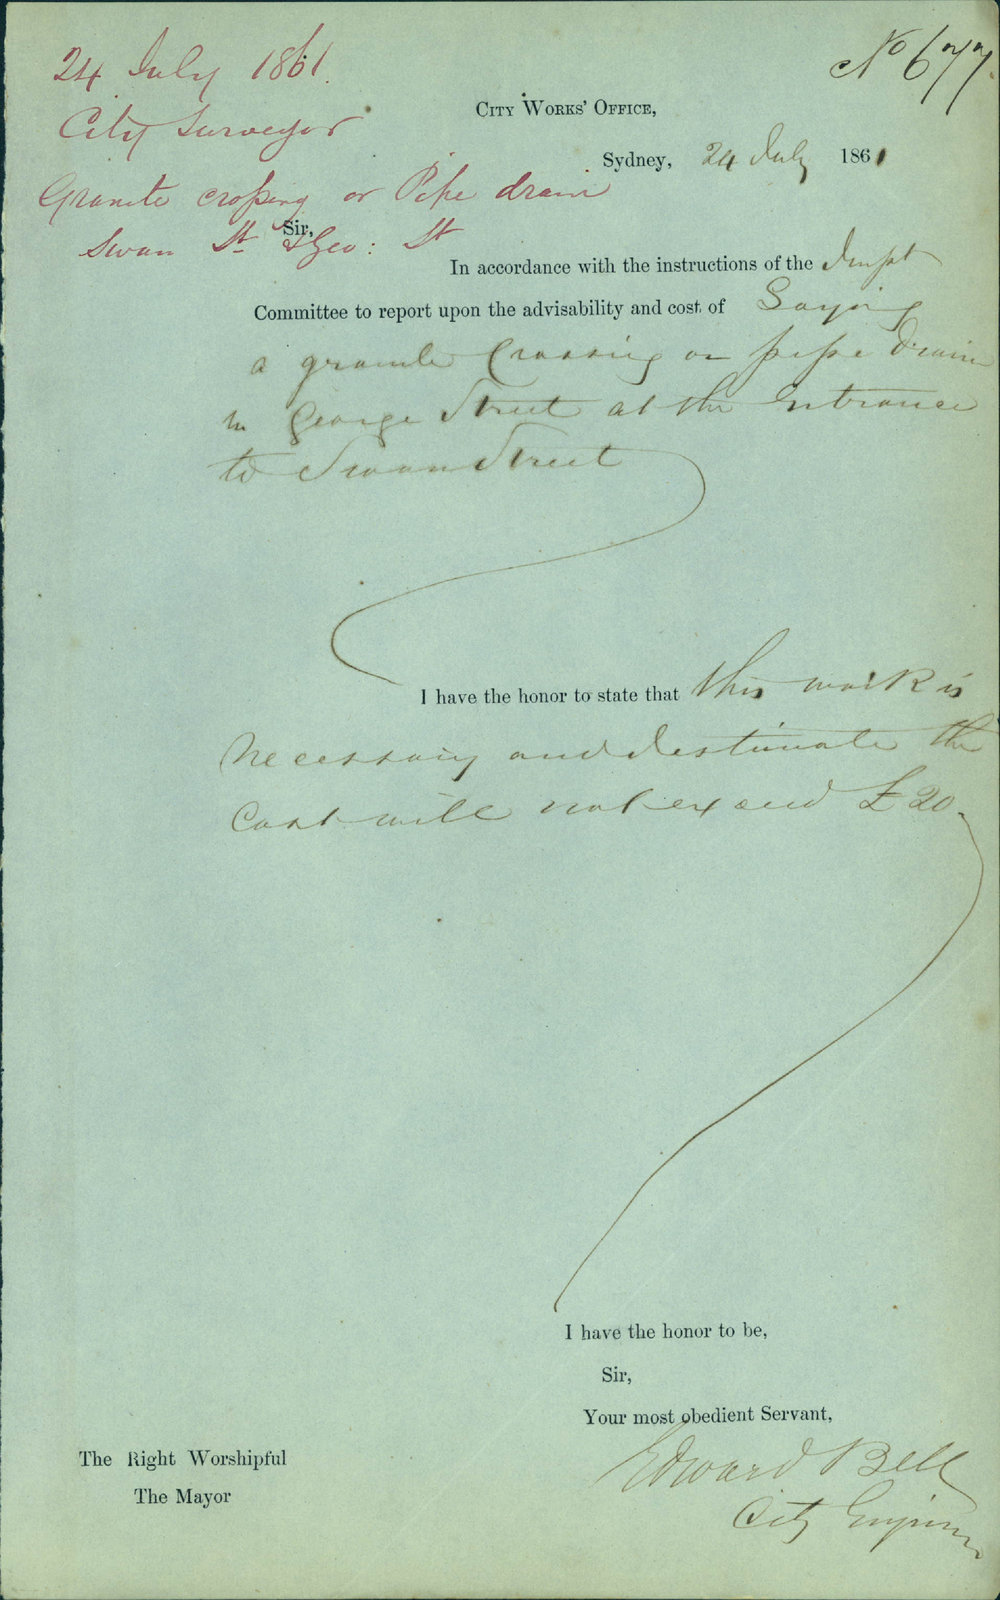 24 July 1861.
No 677.
City Surveyor
City Works' Office,
Sydney, 24 July 1861
Granite crossing or Pipe drain
Swan St & Geo: St
Sir,
In accordance with the instructions of the Impt
Committee to report upon the advisability and cost of Laying
a granite Crossing or pipe Drain
in George Street at the Entrance
to Swan Street
I have the honor to state that this work is
necessary and I estimate the
Cost will not exceed £20.
I have the honor to be,
Sir,
Your most obedient Servant,
Edward Bell
City Engineer
The Right Worshipful
The Mayor